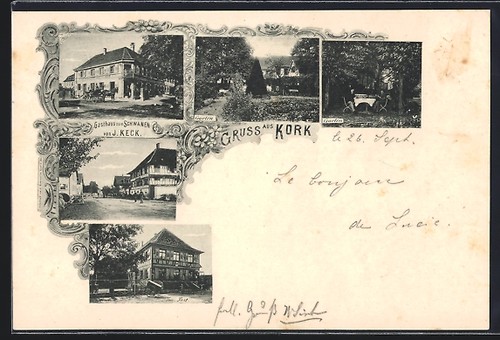 Gasthaus zum Schwanen
von J. Keck.
Gruss aus Kork
le 26. Sept.
Le bonjour
de Lucie.
frll. Gruß